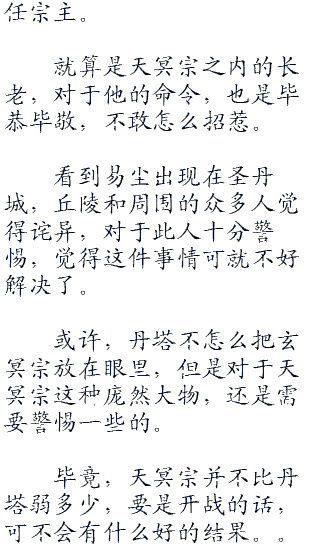 任宗主。
就算是天冥宗之内的长
老，对于他的命令，也是毕
恭毕敬，不敢怎么招惹。
看到易尘出现在圣丹
城，丘陵和周围的众多人觉
得诧异，对于此人十分警
惕，觉得这件事情可就不好
解决了。
或许，丹塔不怎么把玄
冥宗放在眼里，但是对于天
冥宗这种庞然大物，还是需
要警惕一些的。
毕竟，天冥宗并不比丹
塔弱多少，要是开战的话，
可不会有什么好的结果。。